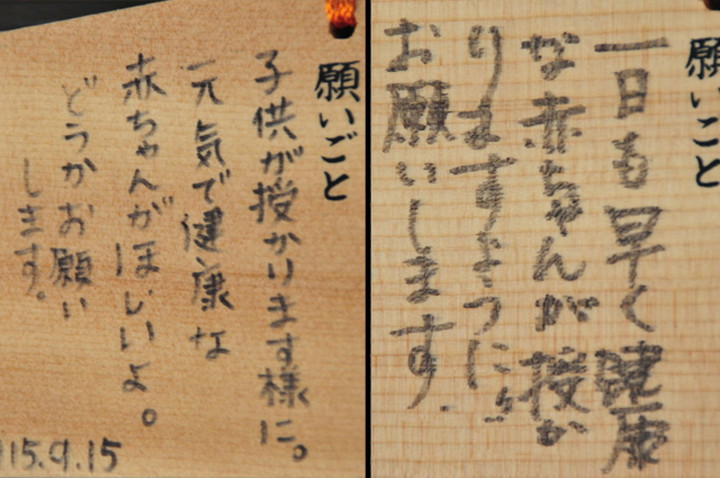 願いごと
子供が授かります様に。
元気で健康な
赤ちゃんがほしいよ。
どうかお願い
します。
15.9.15
願いごと
一日も早く健康
な赤ちゃんが授か
りますように
お願いします。